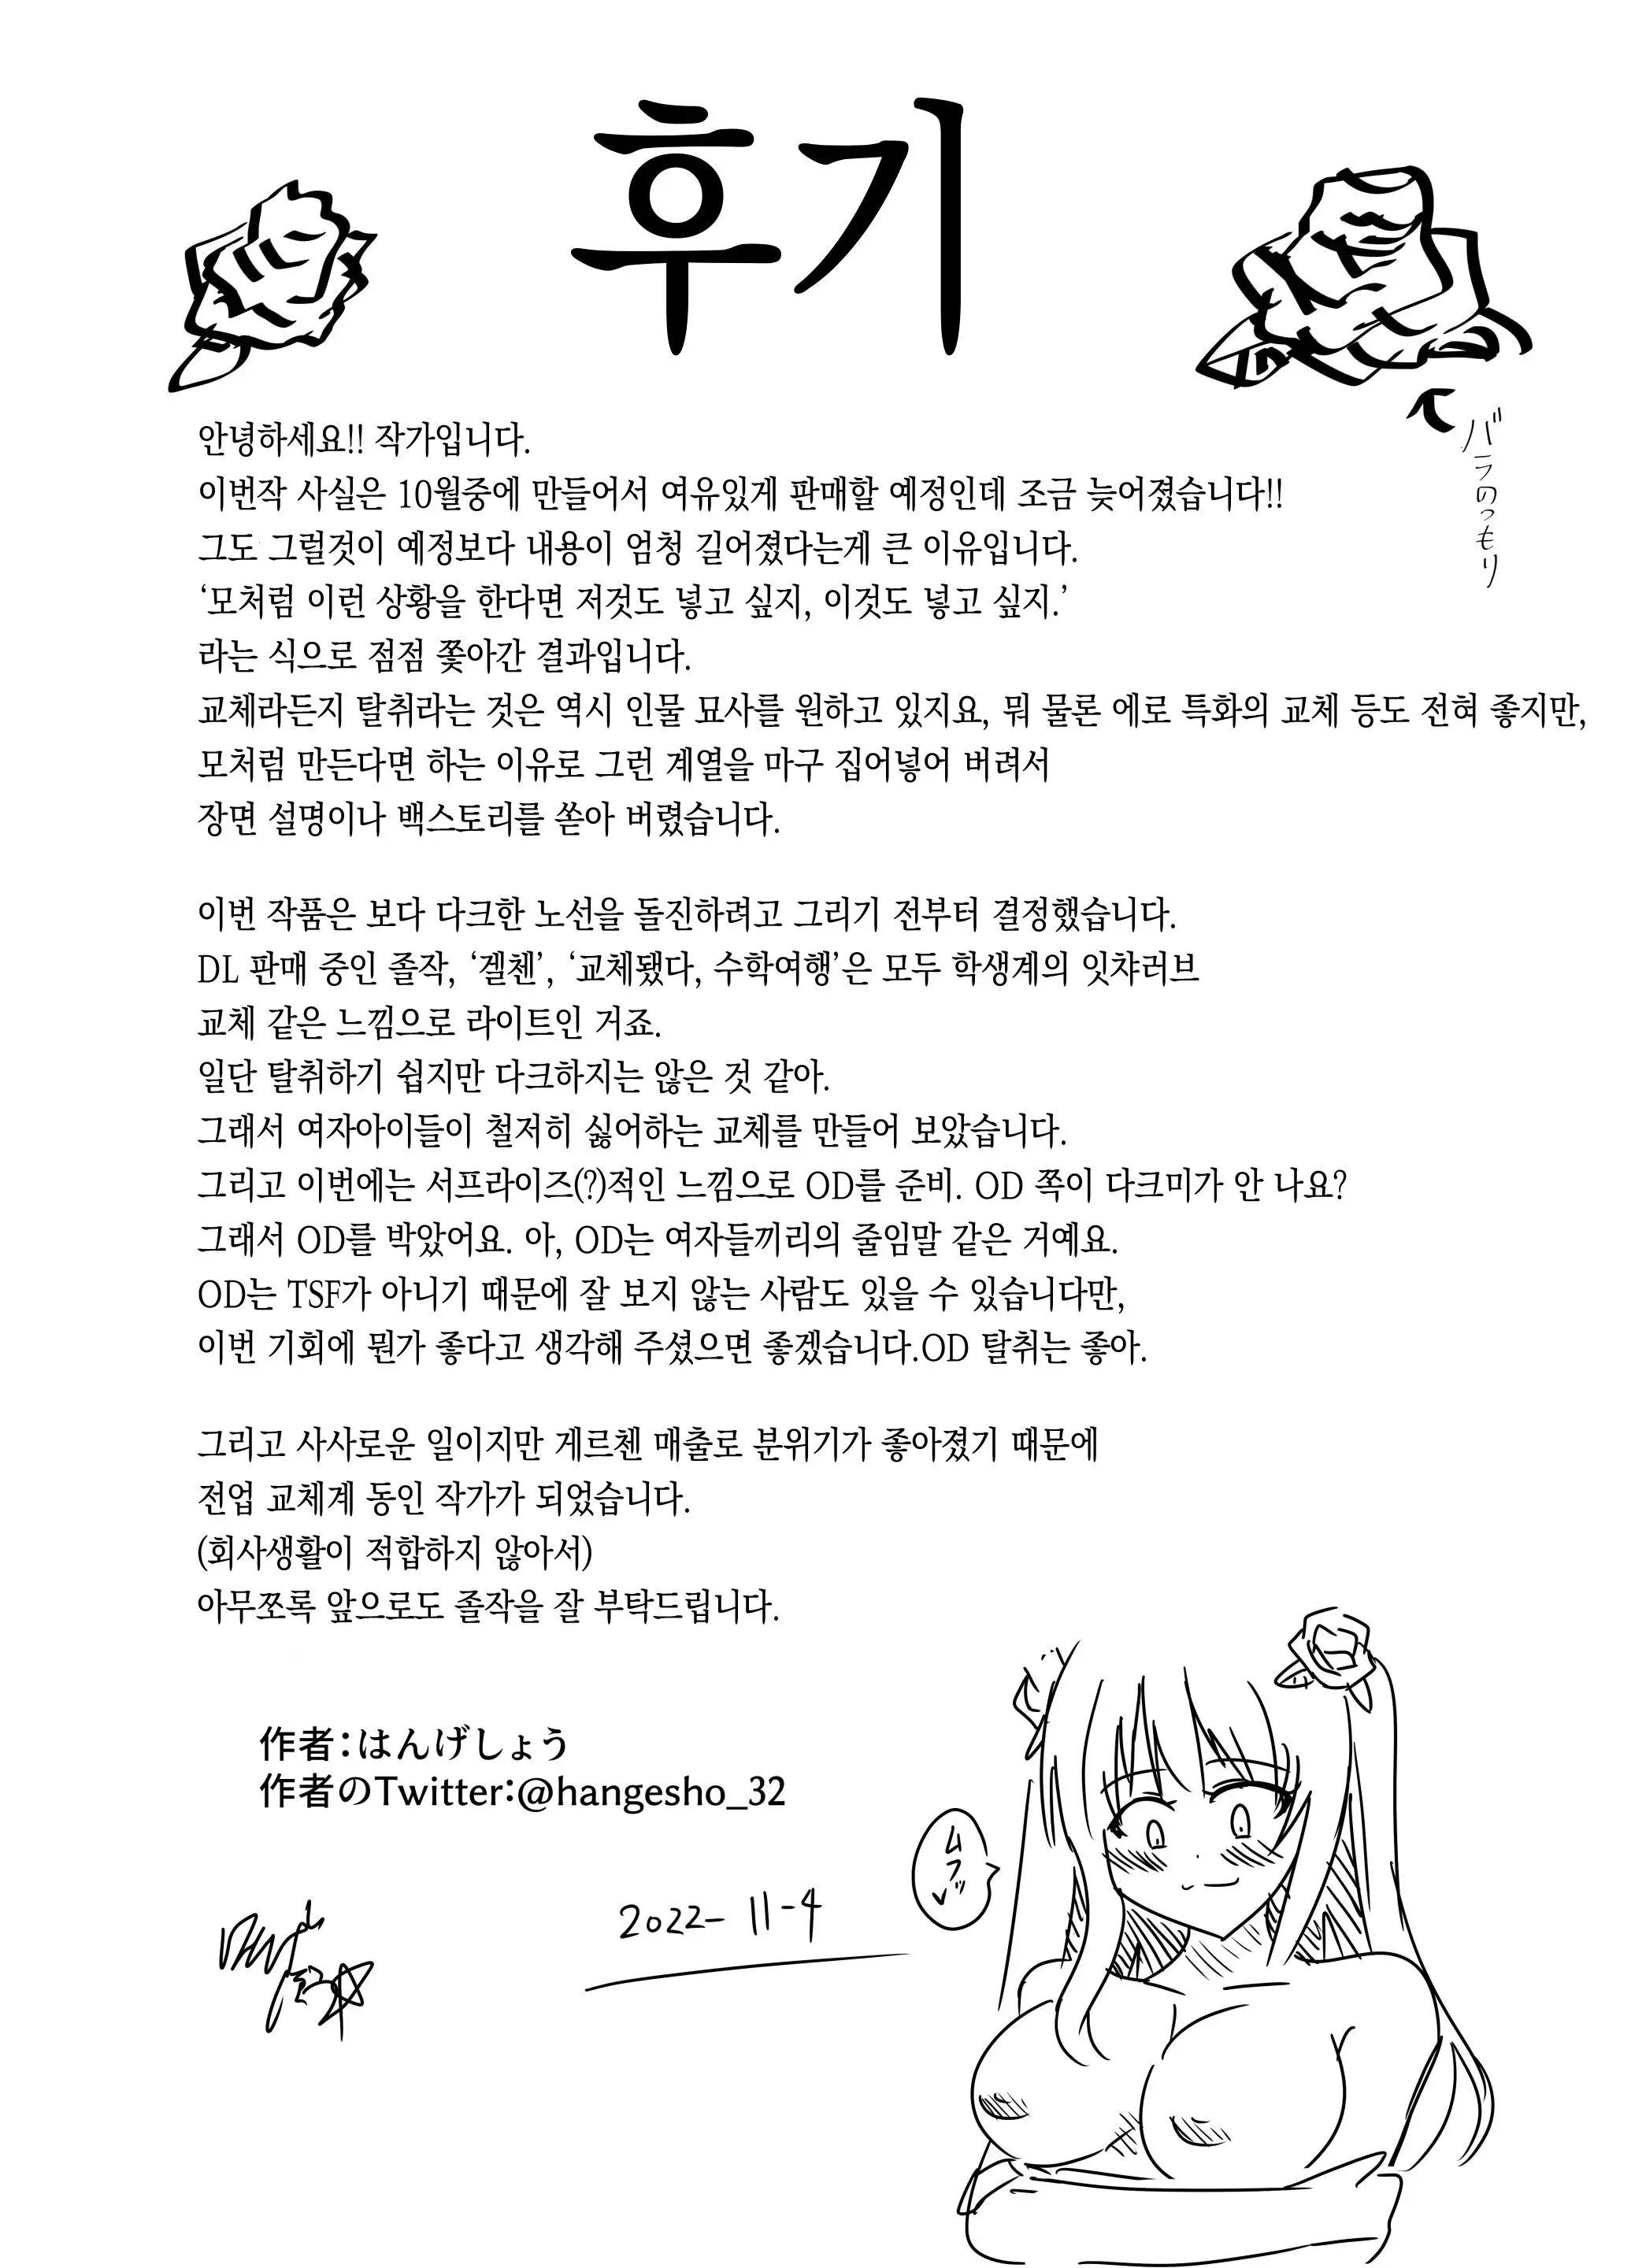 후기
バラのつもり
안녕하세요!! 작가입니다.
이번작 사실은 10월중에 만들어서 여유있게 판매할 예정인데 조금 늦어졌습니다!!
그도 그럴것이 예정보다 내용이 엄청 길어졌다는게 큰 이유입니다.
‘모처럼 이런 상황을 한다면 저것도 넣고 싶지, 이것도 넣고 싶지.’
라는 식으로 점점 쫓아간 결과입니다.
교체라든지 탈취라는 것은 역시 인물 묘사를 원하고 있지요, 뭐 물론 에로 특화의 교체 등도 전혀 좋지만,
모처럼 만든다면 하는 이유로 그런 계열을 마구 집어넣어 버려서
장면 설명이나 백스토리를 쏟아 버렸습니다.
이번 작품은 보다 다크한 노선을 돌진하려고 그리기 전부터 결정했습니다.
DL 판매 중인 졸작, ‘겔첸’, ‘교체됐다, 수학여행’은 모두 학생계의 잇챠러브
교체 같은 느낌으로 라이트인 거죠.
일단 탈취하기 쉽지만 다크하지는 않은 것 같아.
그래서 여자아이들이 철저히 싫어하는 교체를 만들어 보았습니다.
그리고 이번에는 서프라이즈(?)적인 느낌으로 OD를 준비. OD 쪽이 다크미가 안 나요?
그래서 OD를 박았어요. 아, OD는 여자들끼리의 줄임말 같은 거예요.
OD는 TSF가 아니기 때문에 잘 보지 않는 사람도 있을 수 있습니다만,
이번 기회에 뭔가 좋다고 생각해 주셨으면 좋겠습니다.OD 탈취는 좋아.
그리고 사사로운 일이지만 게르첸 매출로 분위기가 좋아졌기 때문에
전업 교체계 동인 작가가 되었습니다.
(회사생활이 적합하지 않아서)
아무쪼록 앞으로도 졸작을 잘 부탁드립니다.
作者：はんげしょう
作者のTwitter：@hangesho_32
ムフッ♥
2022-11-4